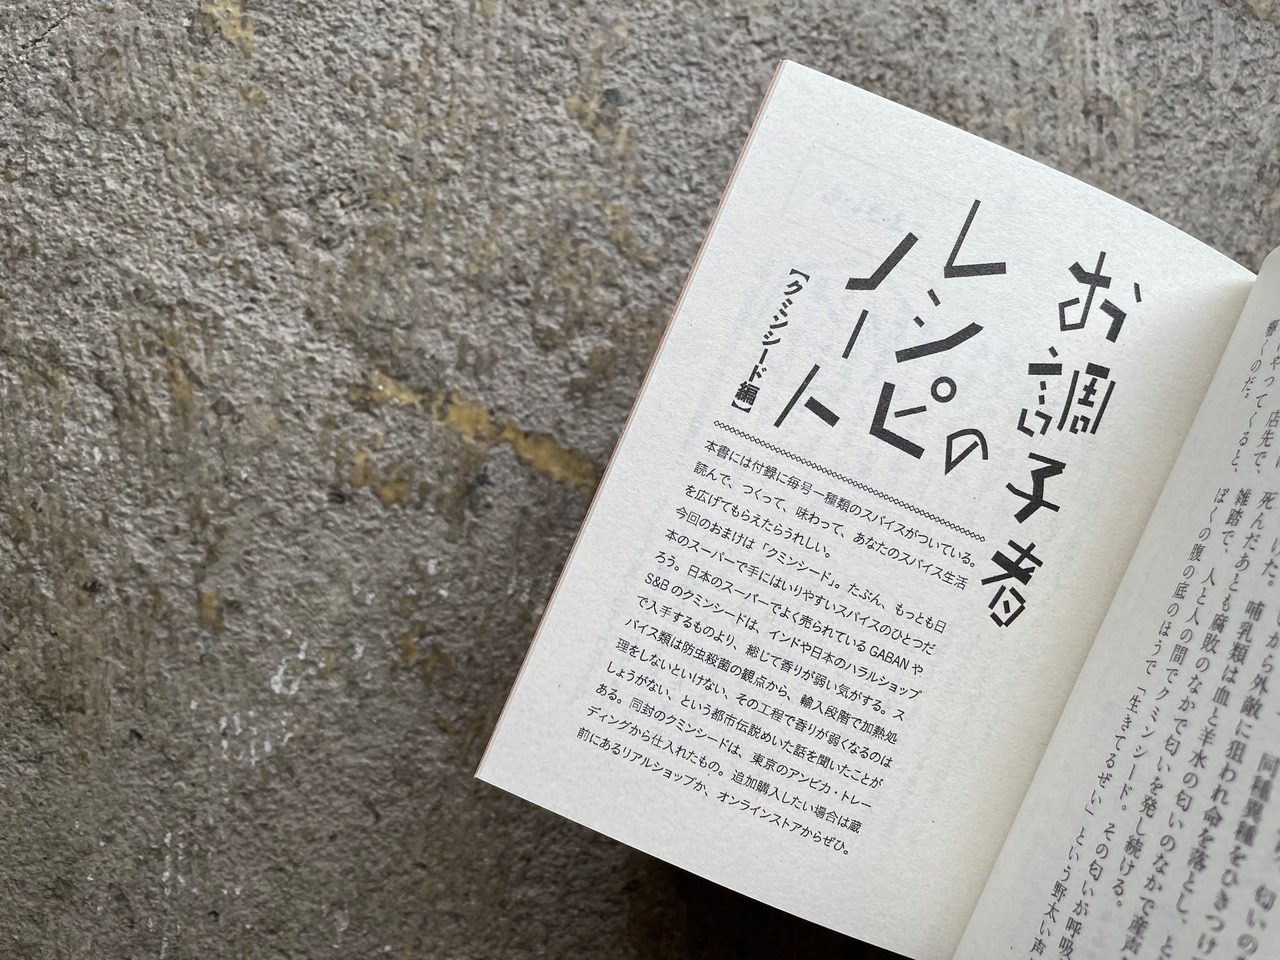 お調子者の
レシピ
ノート
【クミンシード編】
本書には付録に毎号一種類のスパイスがついている。
読んで、つくって、味わって、あなたのスパイス生活
を広げてもらえたらうれしい。
今回のおまけは「クミンシード」。たぶん、もっとも日
本のスーパーで手にはいりやすいスパイスのひとつだ
ろう。日本のスーパーでよく売られている GABAN や
S&B のクミンシードは、インドや日本のハラルショップ
で入手するものより、総じて香りが弱い気がする。ス
パイス類は防虫殺菌の観点から、輸入段階で加熱処
理をしないといけない、その工程で香りが弱くなるのは
しょうがない、という都市伝説めいた話を聞いたことが
ある。同封のクミンシードは、東京のアンビカ・トレー
ディングから仕入れたもの。追加購入したい場合は蔵
前にあるリアルショップか、オンラインストアからぜひ。
匂いの
同種異種をひきつけ
から外敵に狙われ命を落とし、と
けた。哺乳類は血と羊水の匂いのなかで産声
死んだあとも腐敗のなかで匂いを発し続ける。
店先で、雑踏で、人と人の間でクミンシード。その匂いが呼吸
やってくると、ぼくの腹の底のほうで「生きてるぜい」という野太い声
響くのだ。